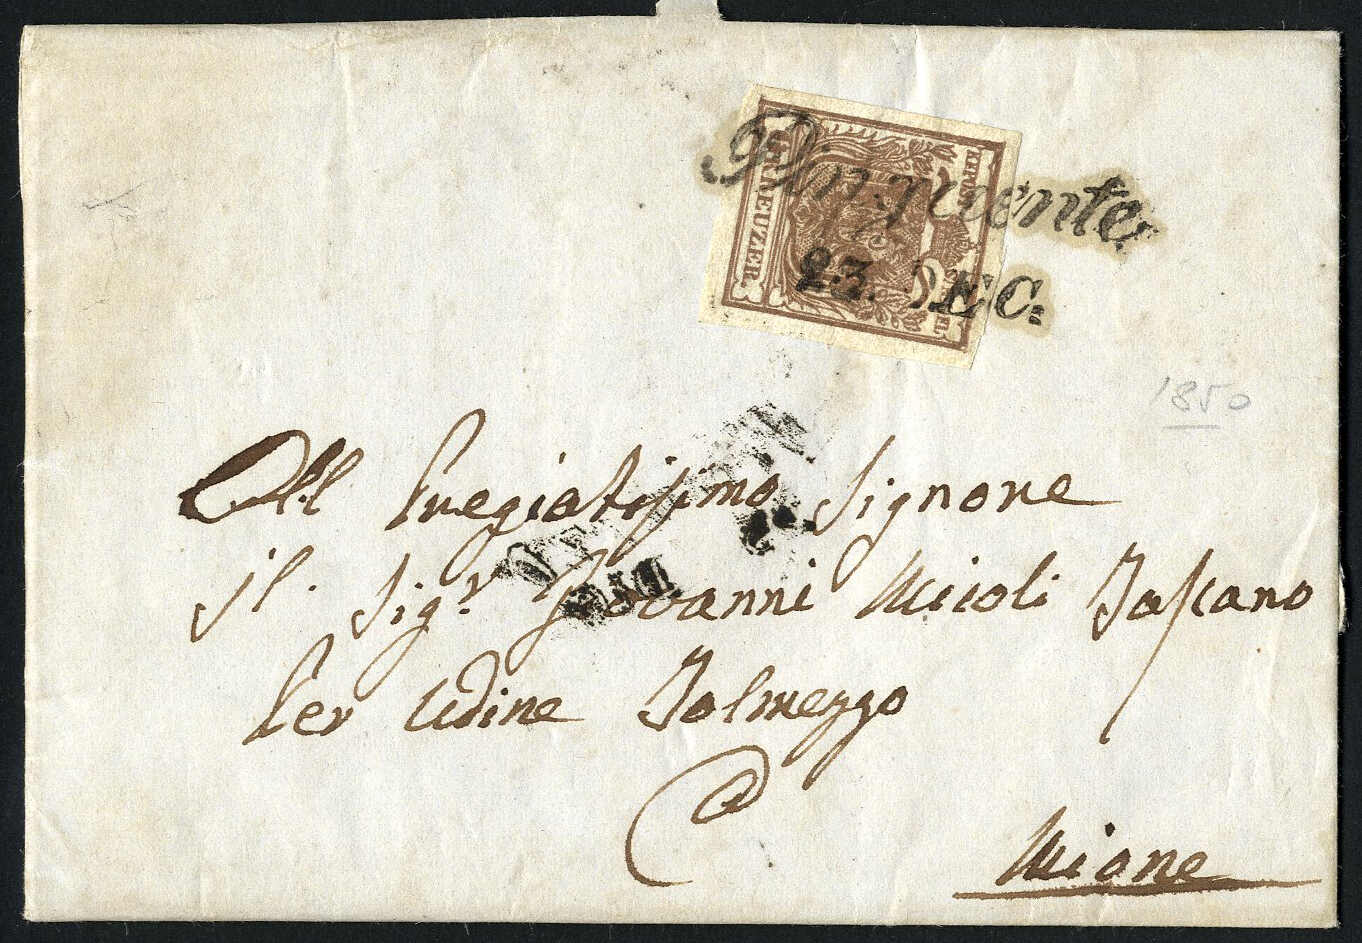 Pinguente
23. DEC.
KREUZER.
1850
All Pregiatissimo Signore
il. Sigr Giovanni Micoli Toscano
Per Udine Tolmezzo
a
Mione